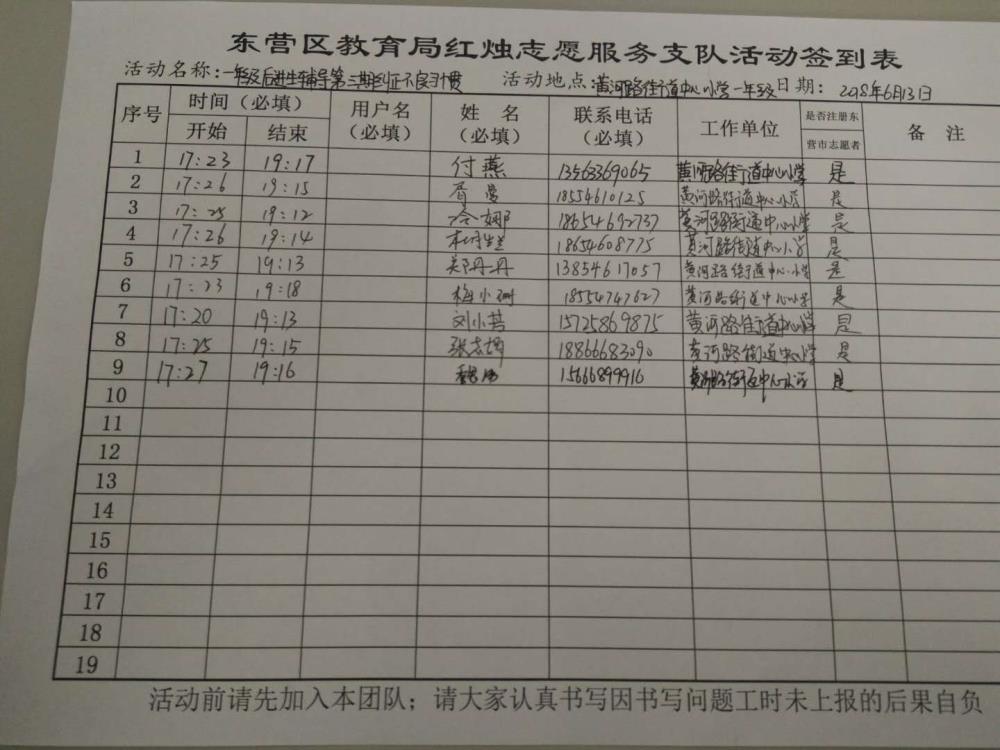 东营区教育局红烛志愿服务支队活动签到表
活动名称:一年级后进生辅导第三期纠正不良习惯 活动地点:黄河路街道中心小学一年级 日期: 2018年6月13日
序号 时间(必填) 用户名 姓 名 联系电话 工作单位 是否注册东 备 注
开始 结束 (必填) (必填) (必填) 营市志愿者
1 17:23 19:17 付燕 13563369065 黄河路街道中心小学 是
2 17:26 19:15 18554610125 黄河路街道中心小学 是
3 17:25 19:12 18654692737 黄河路街道中心小学 是
4 17:26 19:14 18654608775 黄河路街道中心小学 是
5 17:25 19:13 郑丹丹 13854617057 黄河路街道中心小学 是
6 17:23 19:18 梅小珊 18554747627 黄河路街道中心小学 是
7 17:20 19:13 15725869875 黄河路街道中心小学 是
8 17:25 19:15 18866683090 黄河路街道中心小学 是
9 17:27 19:16 15666899916 黄河路街道中心小学 是
10
11
12
13
14
15
16
17
18
19
活动前请先加入本团队;请大家认真书写因书写问题工时未上报的后果自负